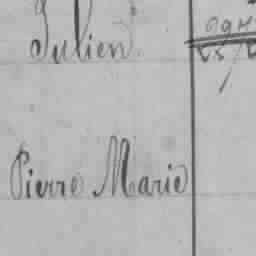 Julien
Pierre Marie